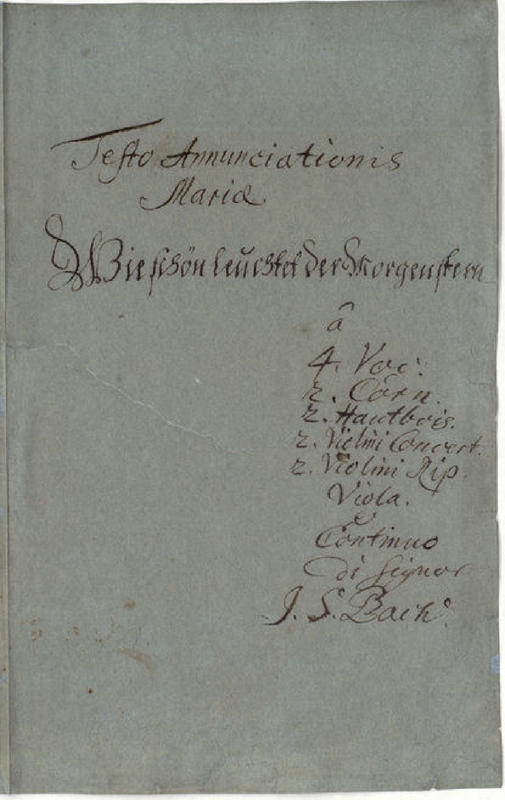 Festo Annunciationis
Mariæ
Wie schön leuchtet der Morgenstern
â
4. Voc:
2. Corn.
2. Hautbois.
2. Violini Concert.
2. Violini Rip.
Viola.
e
Continuo
di Signor
J. S. Bach.